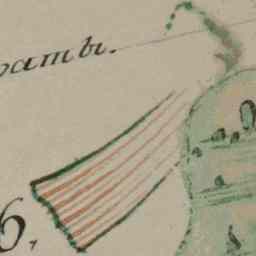 раты.
6,